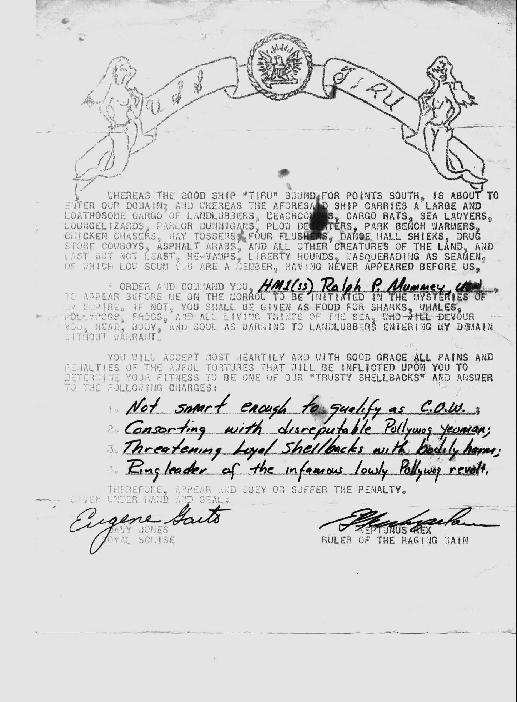 USS TIRU
WHEREAS THE GOOD SHIP "TIRU" BOUND FOR POINTS SOUTH, IS ABOUT TO
ENTER OUR DOMAIN; AND WHEREAS THE AFORESAID SHIP CARRIES A LARGE AND
LOATHSOME CARGO OF LANDLUBBERS, BEACHCOMBERS, CARGO RATS, SEA LAWYERS,
LOUNGELIZARDS, PARLOR DUNNIGANS, PLOW DESERTERS, PARK BENCH WARMERS,
CHICKEN CHASERS, HAY TOSSERS, FOUR FLUSHERS, DANCE HALL SHIEKS, DRUG
STORE COWBOYS, ASPHALT ARABS, AND ALL OTHER CREATURES OF THE LAND, AND
LAST BUT NOT LEAST, HE-VAMPS, LIBERTY HOUNDS, MASQUERADING AS SEAMEN,
OF WHICH LOW SCUM YOU ARE A MEMBER, HAVING NEVER APPEARED BEFORE US,
I ORDER AND COMMAND YOU, HM1(SS) Ralph P. Mummey, USN
TO APPEAR BEFORE ME ON THE MORROW TO BE INITIATED IN THE MYSTERIES OF
MY EMPIRE. IF NOT, YOU SHALL BE GIVEN AS FOOD FOR SHARKS, WHALES,
POLLYWOGS, FROGS, AND ALL LIVING THINGS OF THE SEA, WHO WILL DEVOUR
YOU, HEAD, BODY, AND SOUL AS WARNING TO LANDLUBBERS ENTERING MY DOMAIN
WITHOUT WARRANT.
YOU WILL ACCEPT MOST HEARTILY AND WITH GOOD GRACE ALL PAINS AND
PENALTIES OF THE AWFUL TORTURES THAT WILL BE INFLICTED UPON YOU TO
DETERMINE YOUR FITNESS TO BE ONE OF OUR "TRUSTY SHELLBACKS" AND ANSWER
TO THE FOLLOWING CHARGES:
1. Not smart enough to qualify as C.O.W.;
2. Consorting with disreputable Pollywog yeoman;
3. Threatening Loyal Shellbacks with bodily harm;
4. Ringleader of the infamous lowly Pollywog revolt.
THEREFORE, APPEAR AND OBEY OR SUFFER THE PENALTY.
GIVEN UNDER HAND AND SEAL:
Eugene Gaito
DAVY JONES NEPTUNUS REX
ROYAL SCRIBE RULER OF THE RAGING MAIN